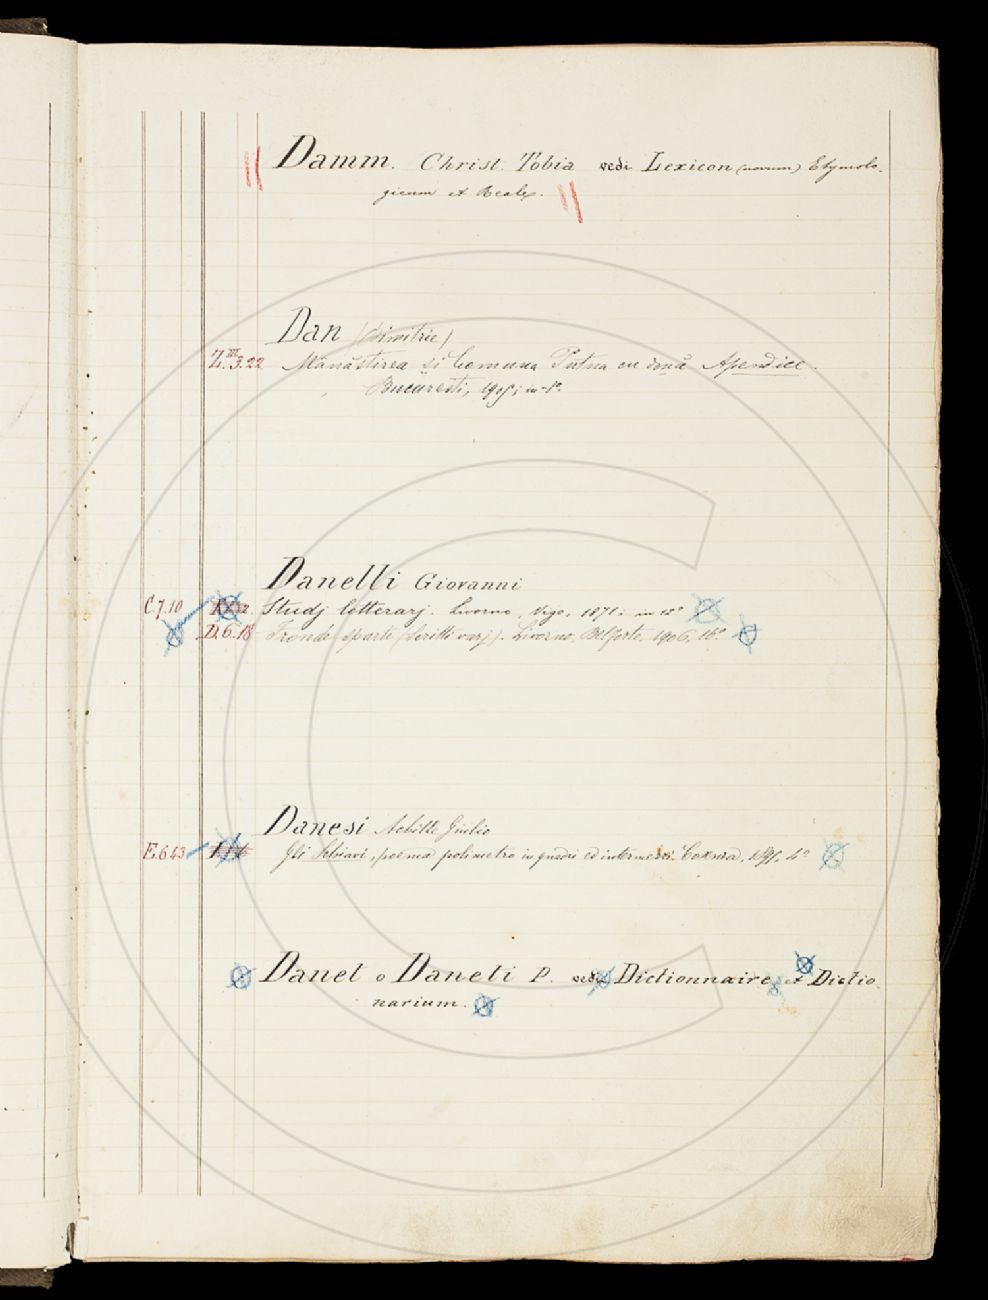 Damm. Christ. Tobia vedi Lexicon (novum) Etymolo-
gicum et Reale.
Dan (Dimitrie)
Z.III.3.22 Mânăstirea și Comuna Putna cu două Apendice.
București, 1905; in-8º
Danelli Giovanni
C.7.10 Studj letterarj. Livorno, Vigo, 1871; in 12º
D.6.18 Fronde sparte (Scritti varj). Livorno, Belforte, 1906, 16º
Danesi Achille Giulio
E.6.43 Gli Schiavi, poema polimetro in quadri ed intermezzi. Cesena, 8º
Danet o Daneti P. vedi Dictionnaire et Dictio-
narium.